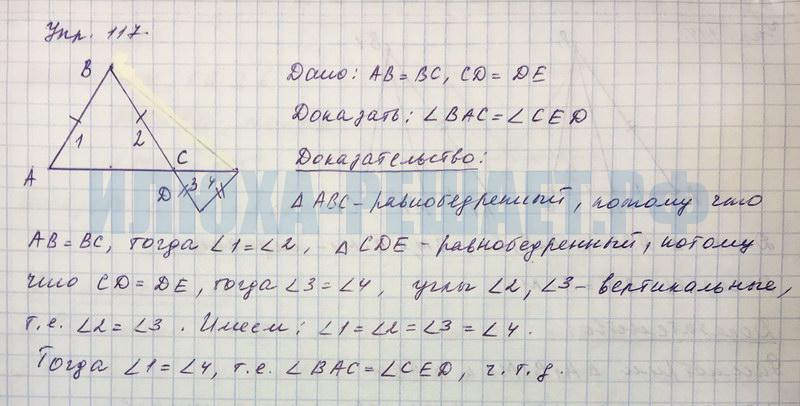 Упр. 117.
B
1
2
A
C
D
3
4
Дано: AB = BC, CD = DE
Доказать: ∠BAC = ∠CED
Доказательство:
△ABC - равнобедренный, потому что
AB = BC, тогда ∠1 = ∠2, △CDE - равнобедренный, потому
что CD = DE, тогда ∠3 = ∠4, углы ∠2, ∠3 - вертикальные,
т.е. ∠2 = ∠3. Имеем: ∠1 = ∠2 = ∠3 = ∠4.
Тогда ∠1 = ∠4, т.е. ∠BAC = ∠CED, ч.т.д.
ИЛЮХА-РЕШАЕТ.РФ